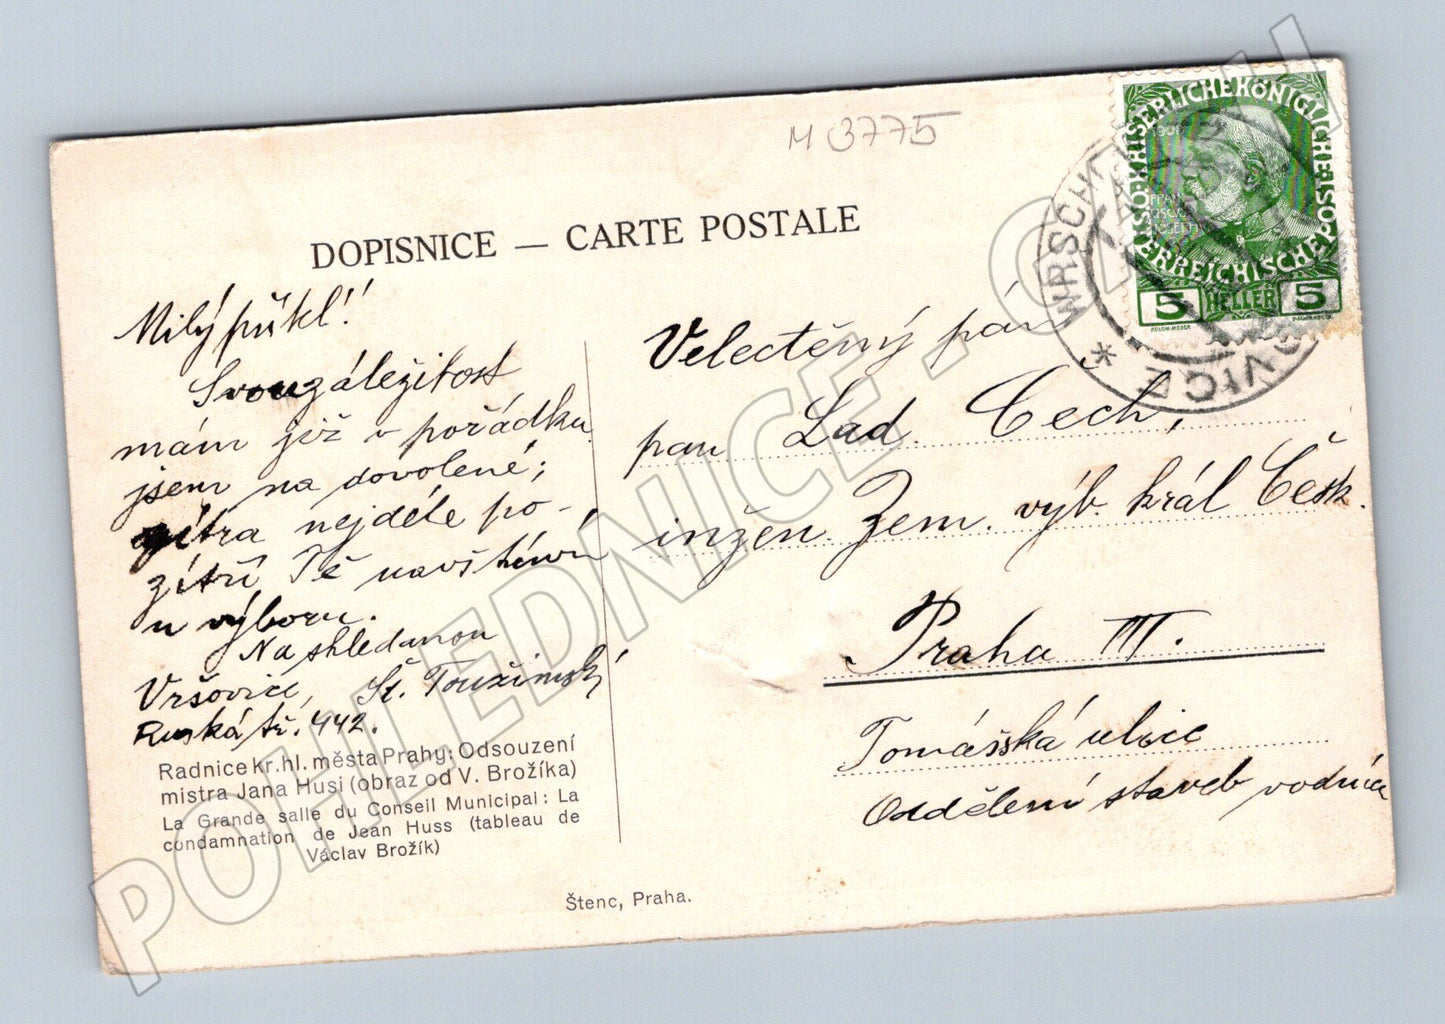 M 3775
DOPISNICE — CARTE POSTALE
Milý
Svou záležitost
mám již v pořádku
jsem na dovolené;
zítra nejdéle po-
zítří Tě navštívím
u výboru.
Na shledanou
Vršovice, St. Toužimský
Ruská tř. 442.
Radnice kr. hl. města Prahy: Odsouzení
mistra Jana Husi (obraz od V. Brožíka)
La Grande salle du Conseil Municipal: La
condamnation de Jean Huss (tableau de
Václav Brožík)
Štenc, Praha.
Velectěný pán
pan Lad. Čech,
inžen. Zem. výb. král Česk.
Praha III.
Tomášská ulice
Oddělení staveb vodních
KAISERLICHE KÖNIGLICHE
ÖSTERREICHISCHE POST
5 HELLER 5
WRSCHOWITZ
VRŠOVICE *
POHLEDNICE-SBERATEL